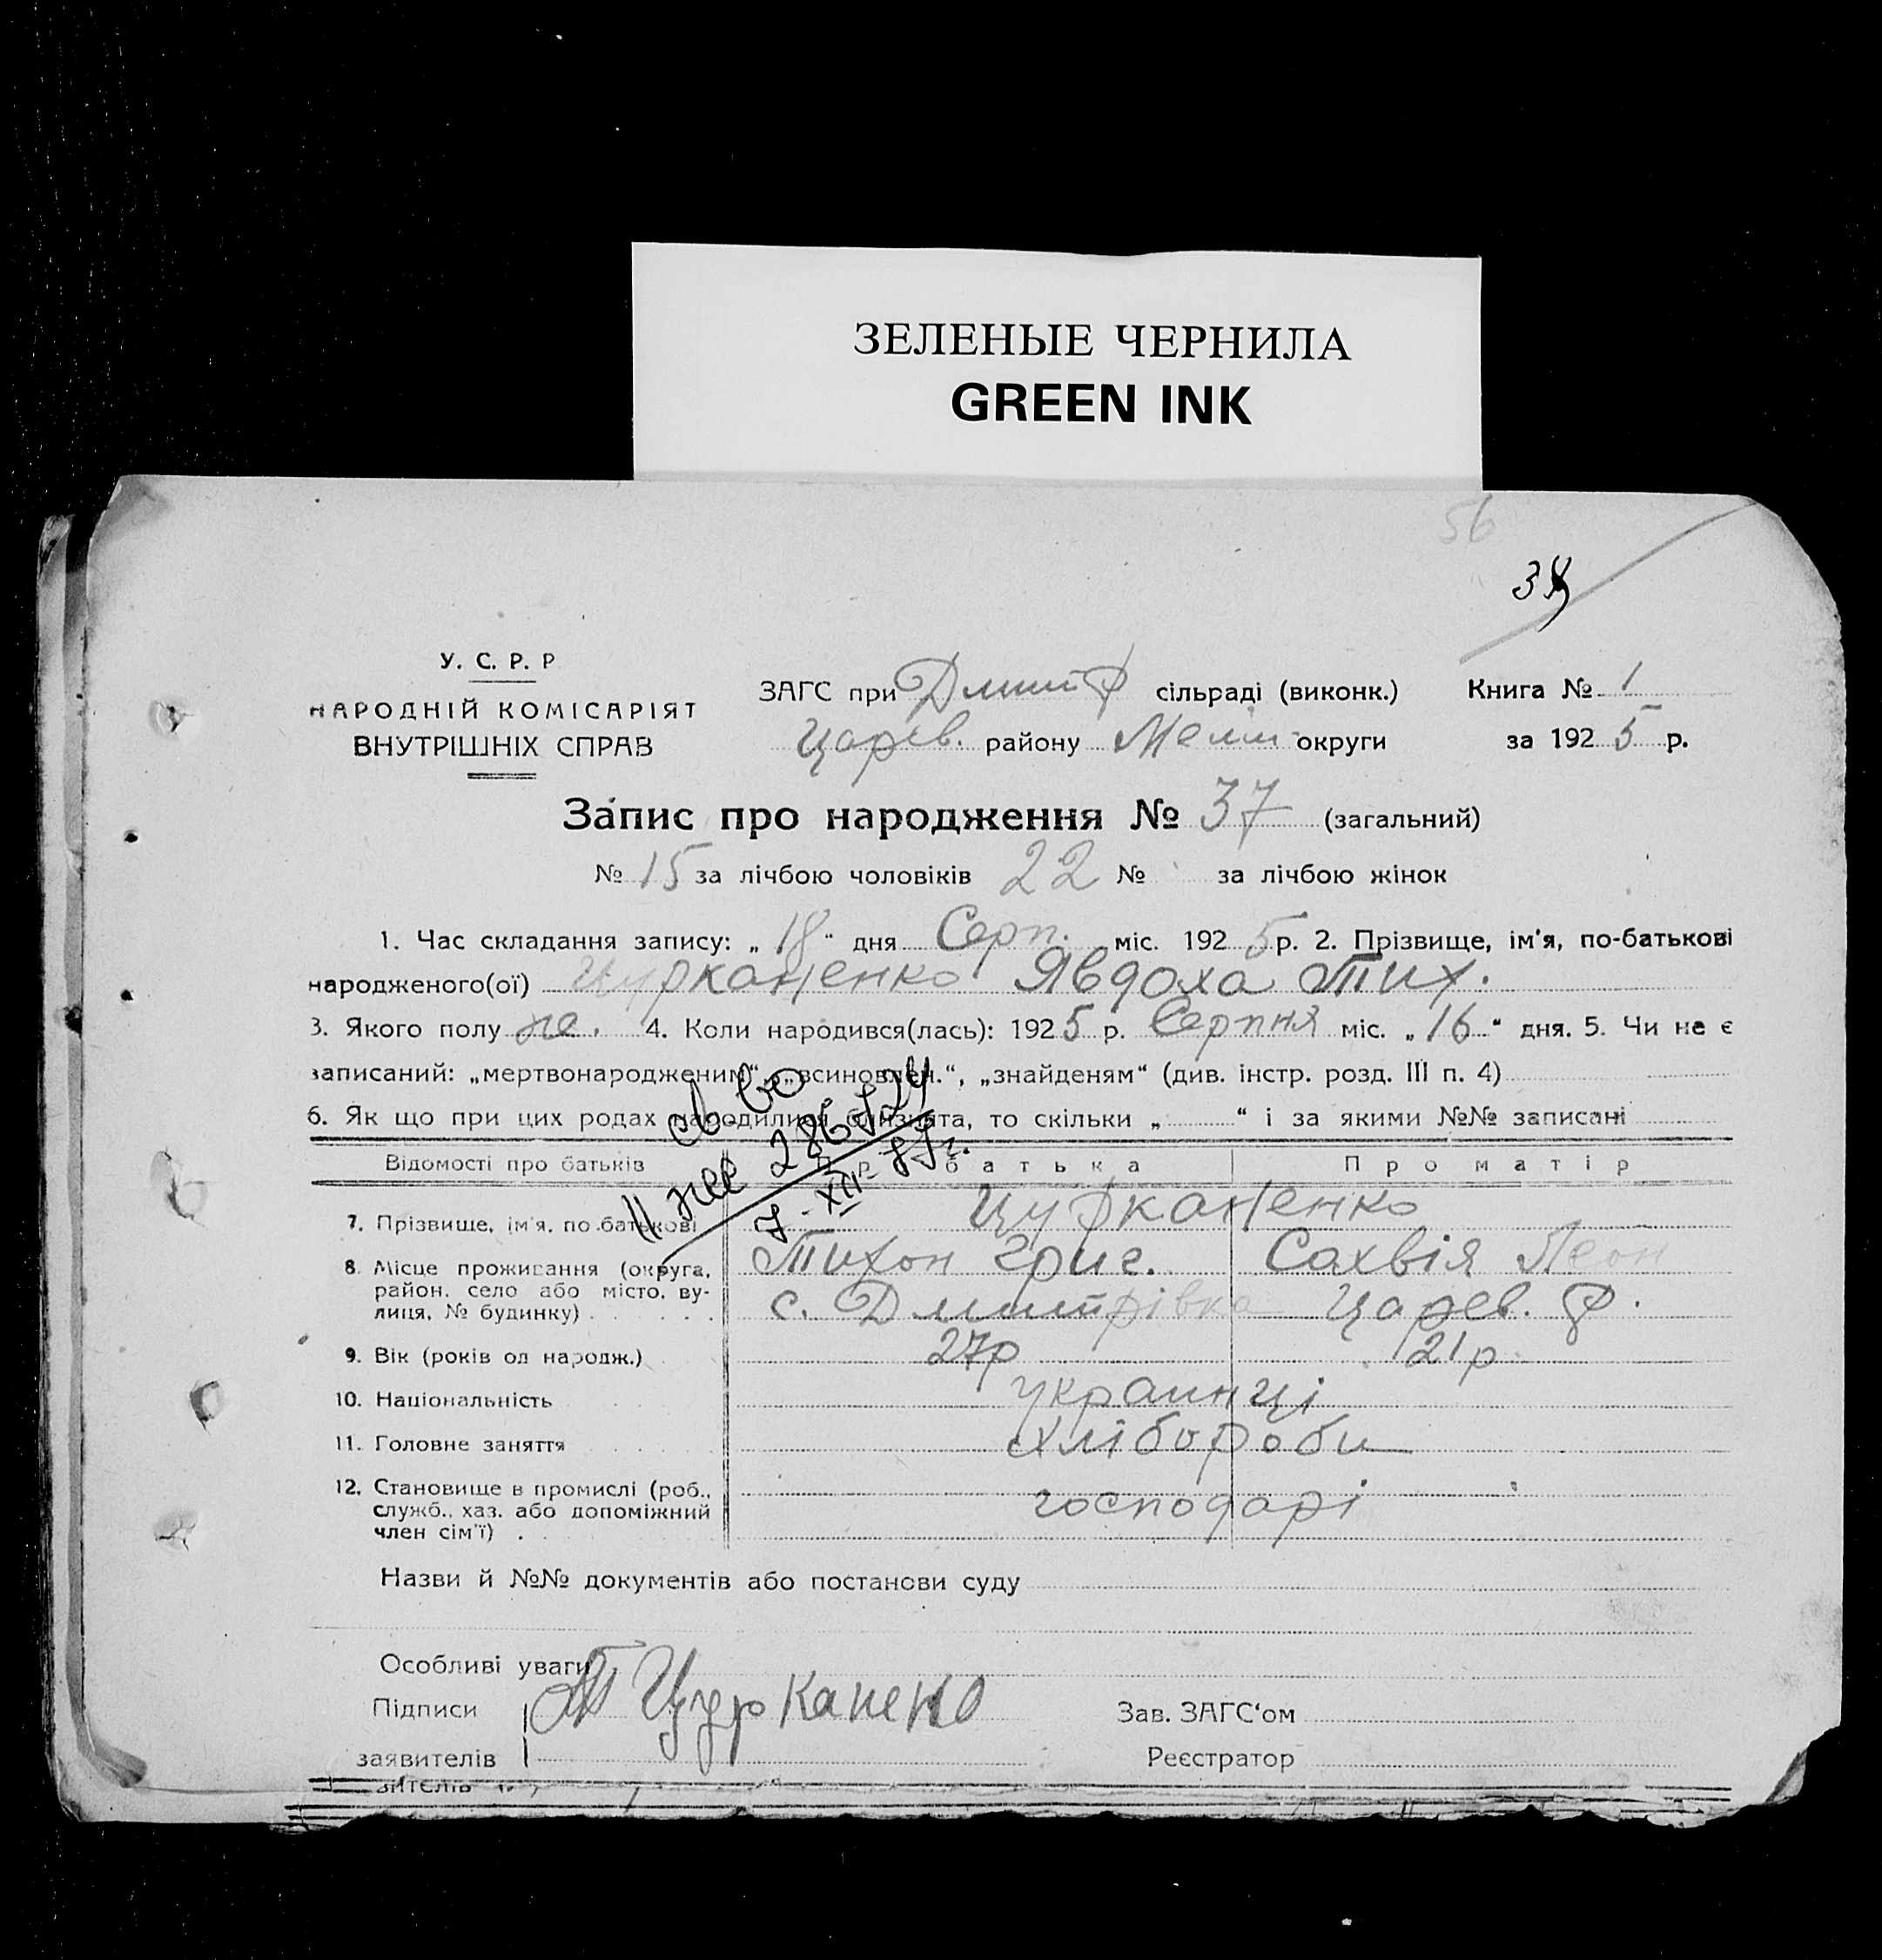 ЗЕЛЕНЫЕ ЧЕРНИЛА
GREEN INK
56
У. С. Р. Р
НАРОДНІЙ КОМІСАРІЯТ
ВНУТРІШНІХ СПРАВ
ЗАГС при Дмитр сільраді (виконк.) Книга № 1
Царев. району Меліт округи за 1925 р.
Запис про народження № 37 (загальний)
№ 15 за лічбою чоловіків 22 № за лічбою жінок
1. Час складання запису: „ 18 “ дня Серп. міс. 1925 р. 2. Прізвище, ім'я, по-батькові
народженого(ої) Цурканенко Явдоха Тих.
3. Якого полу же. 4. Коли народився(лась): 1925 р. Серпня міс. „ 16 “ дня. 5. Чи не є
записаний: „мертвонародженим“, „всиновлен.“, „знайденям“ (див. інстр. розд. III п. 4)
6. Як що при цих родах народилися близнята, то скільки „ “ і за якими №№ записані
св-во
II жс 286724
7-XII-
Відомості про батьків Про батька Про матір
7. Прізвище, ім'я, по-батькові Цурканенко
Тихон Григ. Сахвія Леон
8. Місце проживання (округа, район, село або місто, вулиця, № будинку) с. Дмитрівка Царев. Р.
9. Вік (років од народж.) 27р 21р
10. Національність украинці
11. Головне заняття хлібороби
12. Становище в промислі (роб., служб., хаз. або допоміжний член сім'ї) господарі
Назви й №№ документів або постанови суду
Особливі уваги
Підписи Т Цурканенко Зав. ЗАГС'ом
заявителів Реєстратор